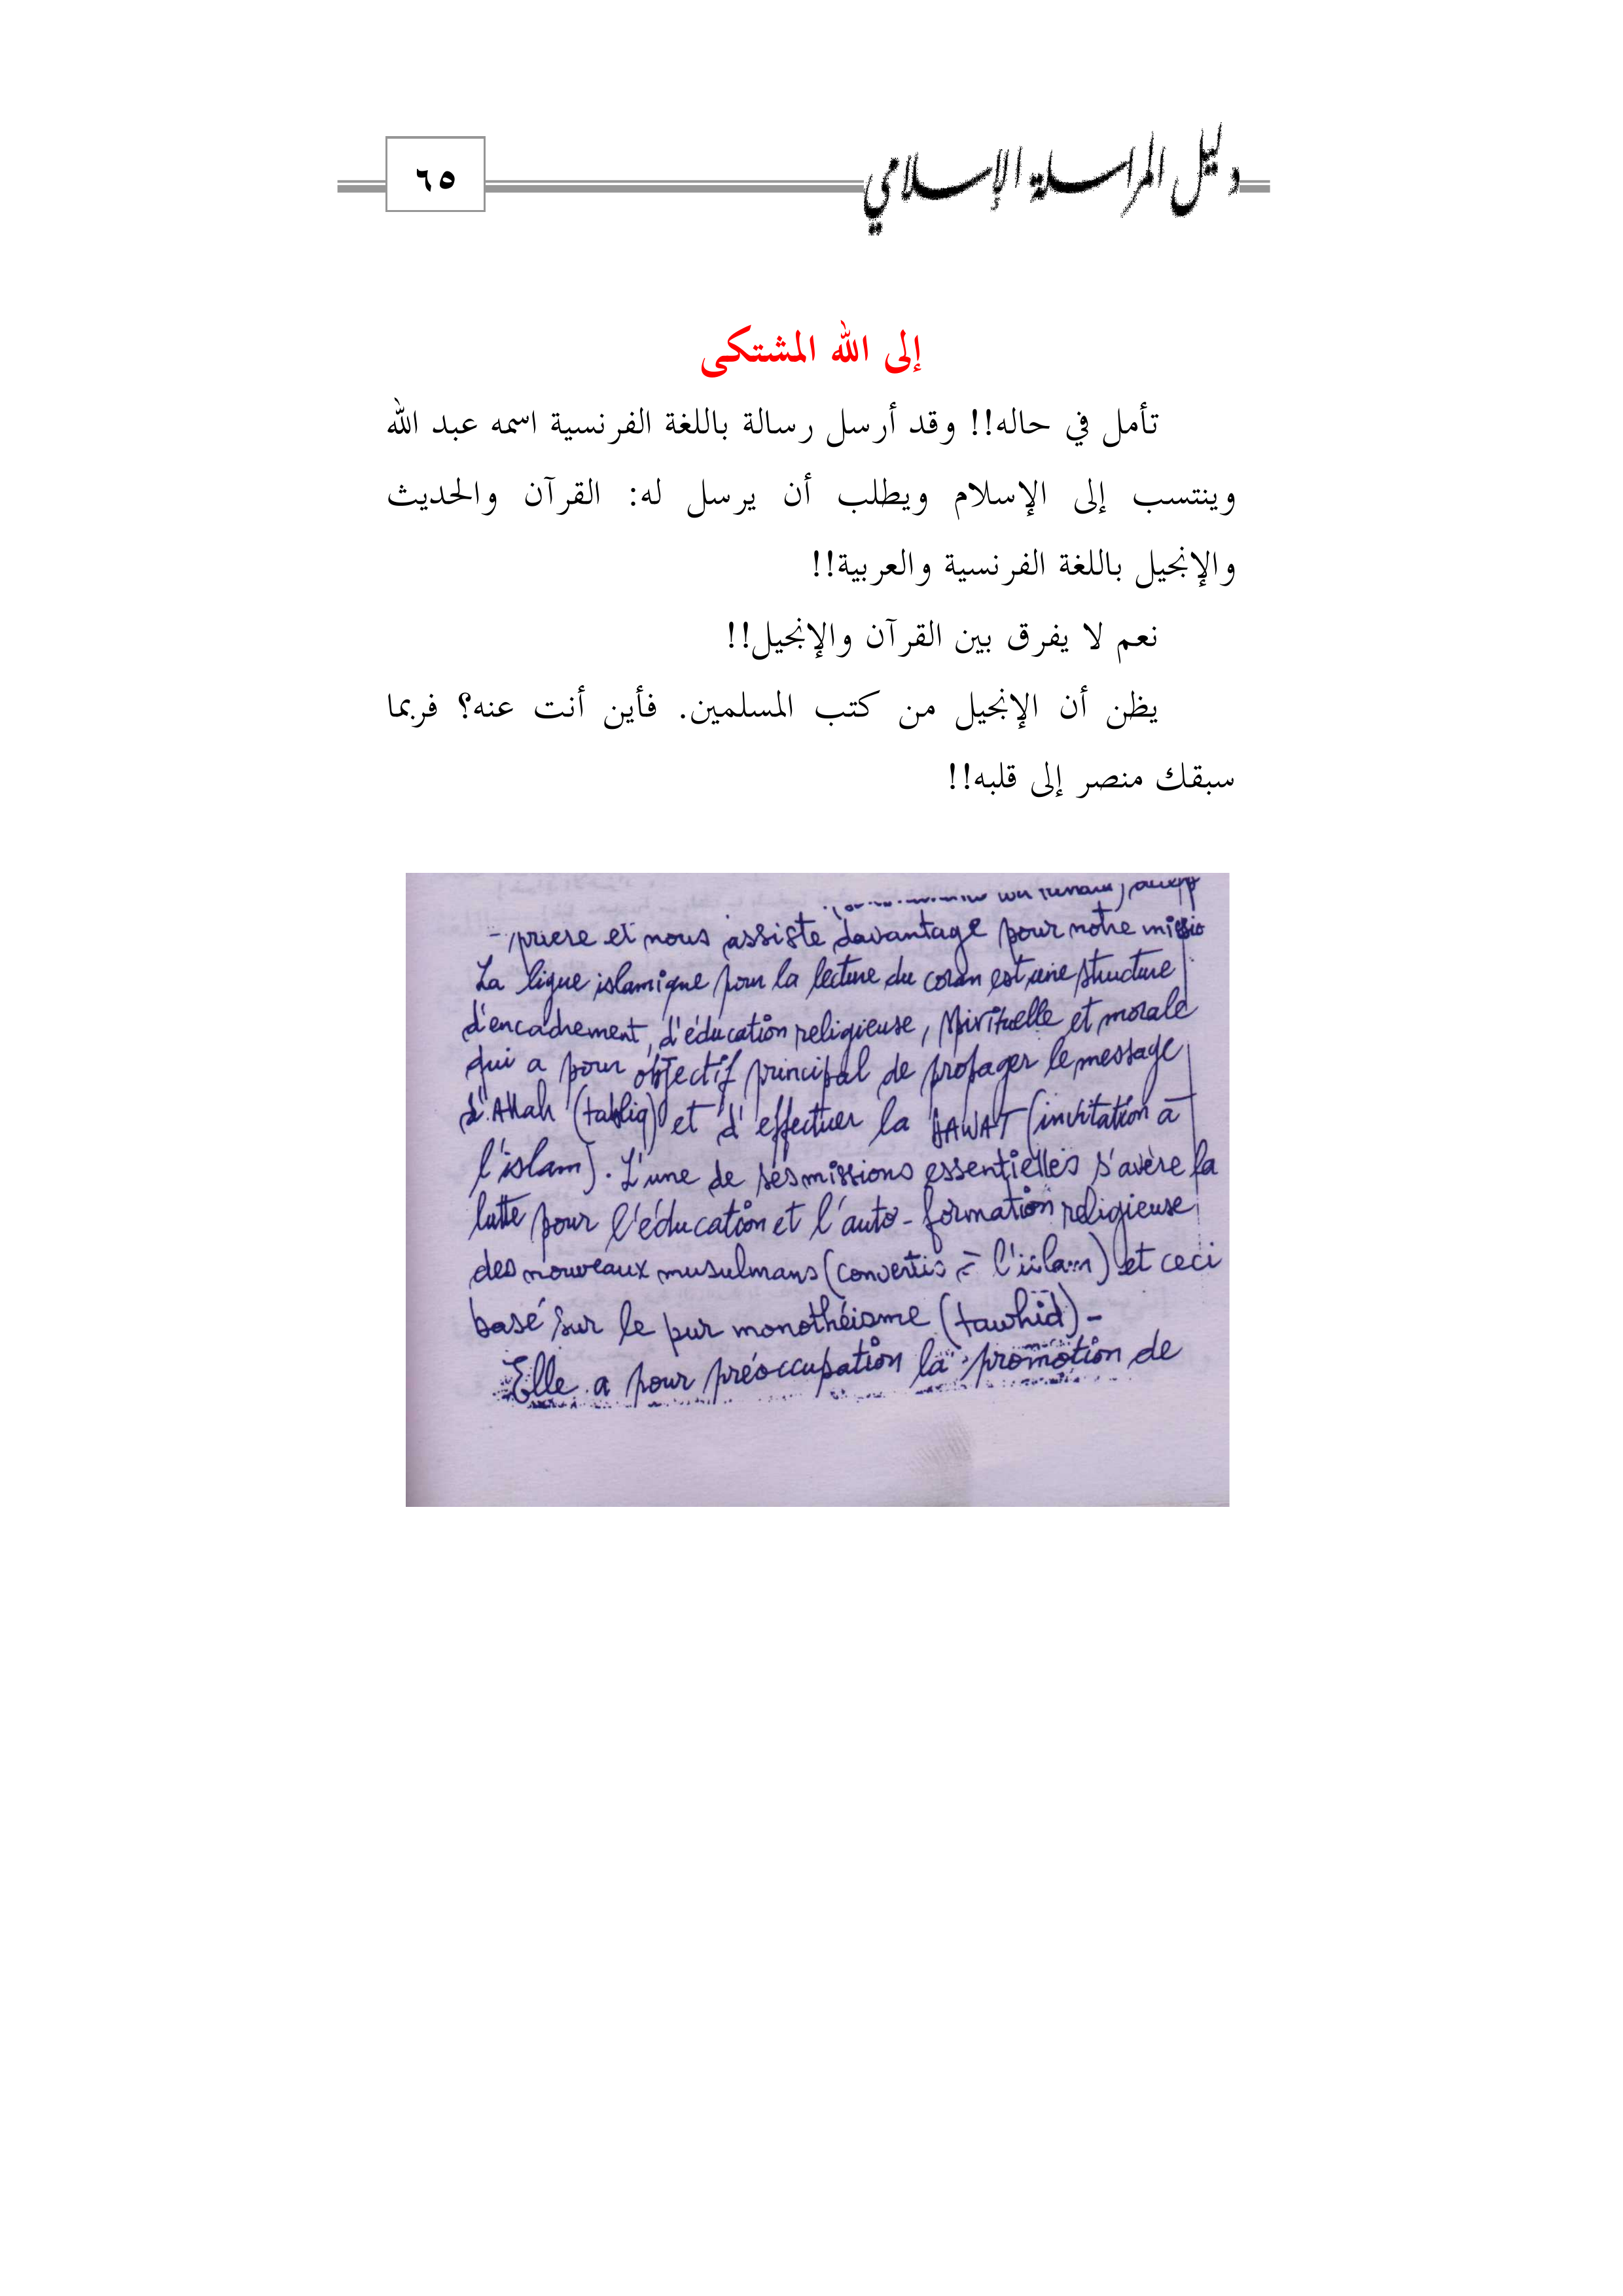 دليل المراسلة الإسلامي
٦٥
إلى الله المشتكى
تأمل في حاله!! وقد أرسل رسالة باللغة الفرنسية اسمه عبد الله
وينتسب إلى الإسلام ويطلب أن يرسل له: القرآن والحديث
والإنجيل باللغة الفرنسية والعربية!!
نعم لا يفرق بين القرآن والإنجيل!!
يظن أن الإنجيل من كتب المسلمين. فأين أنت عنه؟ فربما
سبقك منصر إلى قلبه!!
- priere et nous assiste davantage pour notre missio
La ligue islamique pour la lecture du coran est une structure
d'encadrement, d'éducation religieuse, spirituelle et morale
qui a pour objectif principal de propager le message
d'Allah (tabliq) et d'effectuer la DAWAT (invitation à
l'islam). L'une de ses missions essentielles s'avère la
lutte pour l'éducation et l'auto-formation religieuse
des nouveaux musulmans (convertis à l'islam) et ceci
basé sur le pur monothéisme (tawhid) -
Elle a pour préoccupation la promotion de